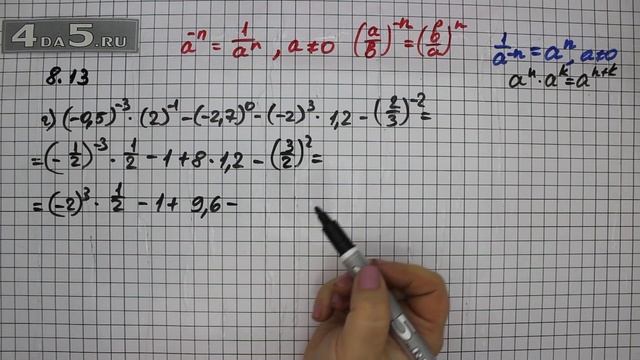 4 DA 5.RU
a⁻ⁿ = 1/aⁿ , a≠0 (a/b)⁻ⁿ = (b/a)ⁿ
1/a⁻ⁿ = aⁿ, a≠0
aⁿ · aᵏ = aⁿ⁺ᵏ
8.13
г) (-0,5)⁻³ · (2)⁻¹ - (-2,7)⁰ - (-2)³ · 1,2 - (2/3)⁻² =
= (- 1/2)⁻³ · 1/2 - 1 + 8 · 1,2 - (3/2)² =
= (-2)³ · 1/2 - 1 + 9,6 -